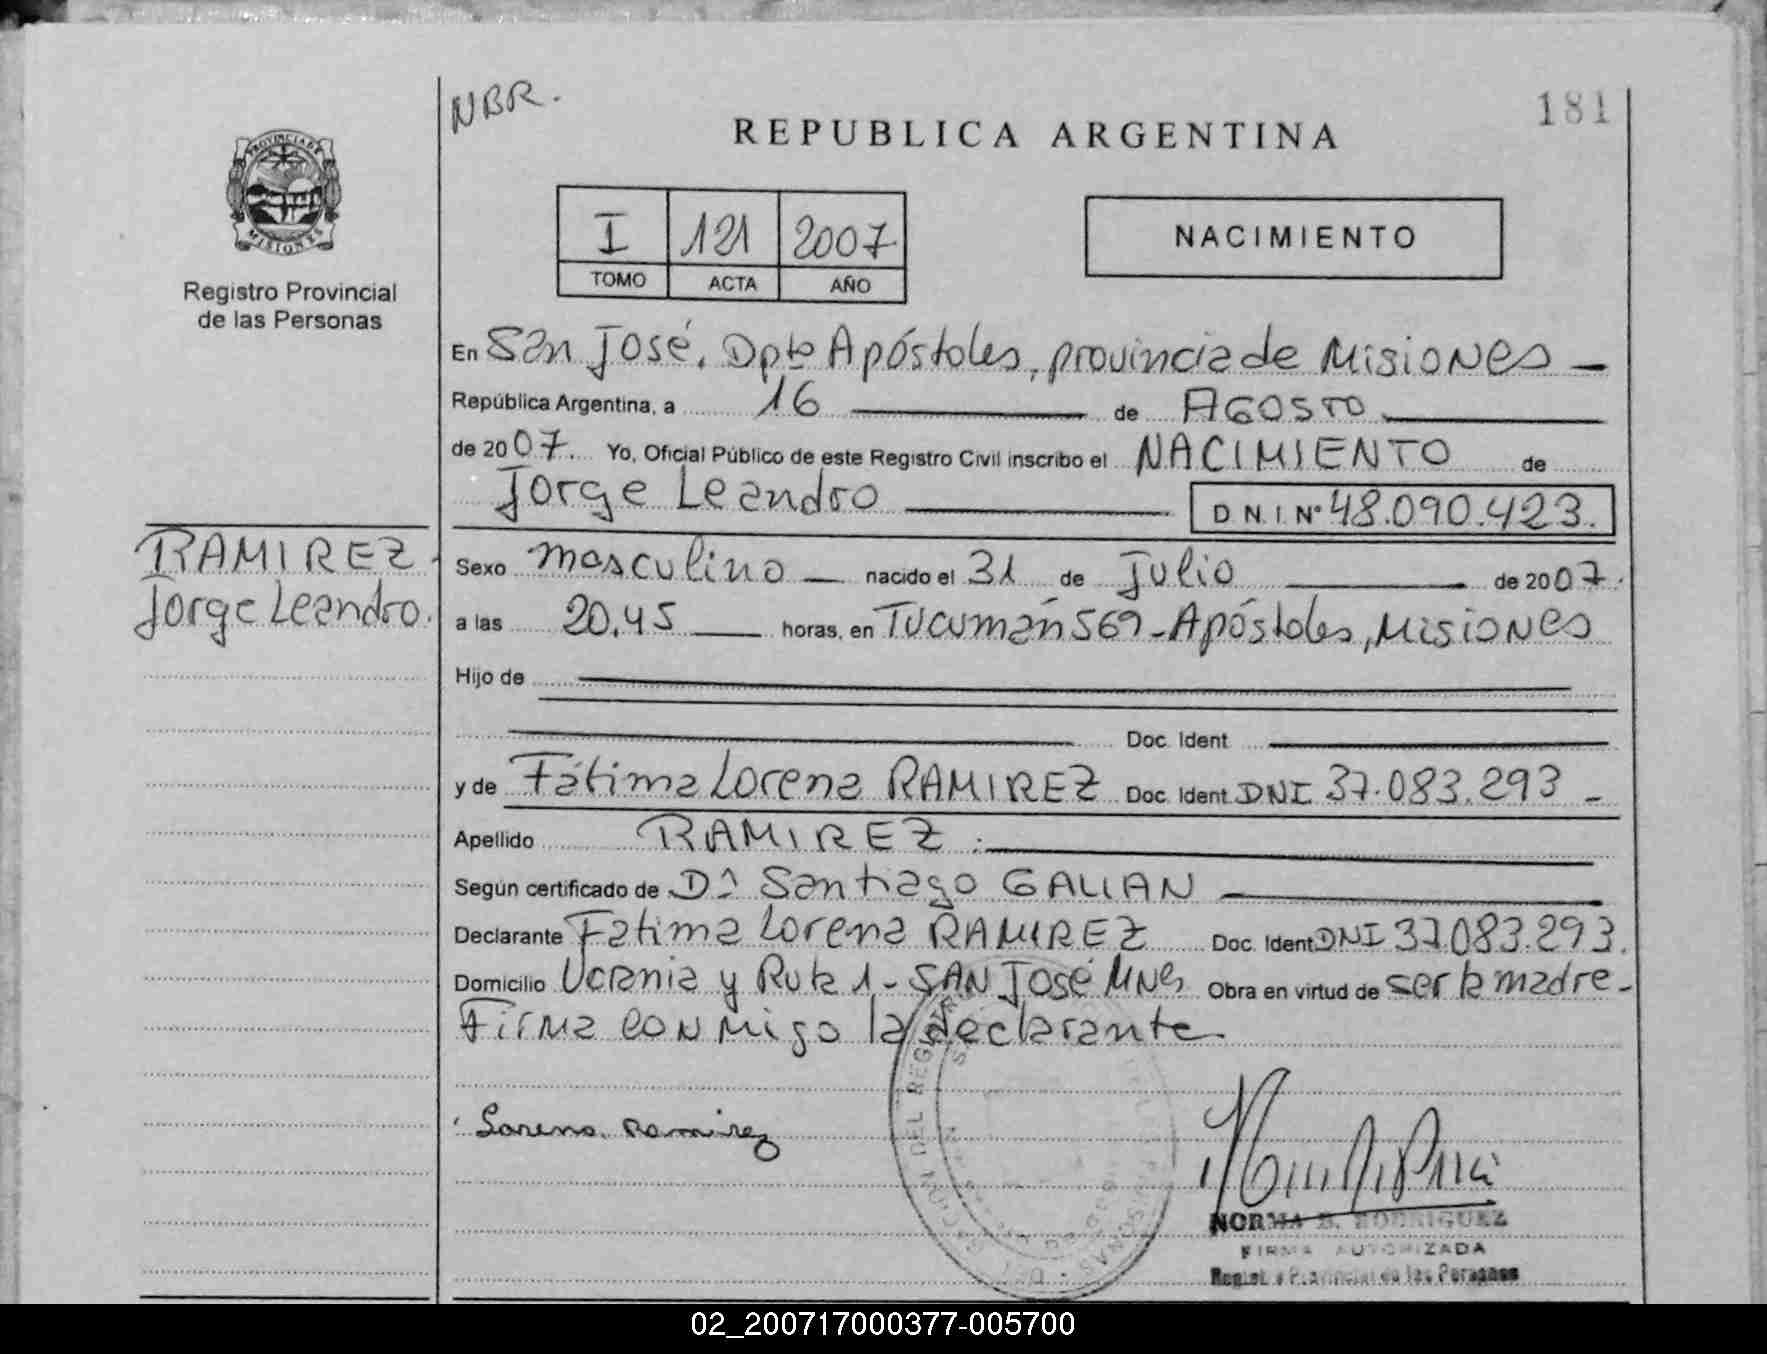 NBR.
181
REPUBLICA ARGENTINA
PROVINCIA DE
MISIONES
Registro Provincial
de las Personas
I 121 2007
TOMO ACTA AÑO
NACIMIENTO
En San José, Dpto Apóstoles, provincia de Misiones -
República Argentina, a 16 de Agosto
de 2007. Yo, Oficial Público de este Registro Civil inscribo el NACIMIENTO de
Jorge Leandro D.N.I. N° 48.090.423.
RAMIREZ
Jorge Leandro.
Sexo masculino nacido el 31 de Julio de 2007.
a las 20,45 horas, en Tucumán 569 - Apóstoles, Misiones
Hijo de
Doc. Ident.
y de Fátima Lorena RAMIREZ Doc. Ident. DNI 37.083.293 -
Apellido RAMIREZ.
Según certificado de Dr Santiago GALIAN
Declarante Fatima Lorena RAMIREZ Doc. Ident. DNI 37.083.293.
Domicilio Ucrania y Ruta 1 - SAN José Mnes Obra en virtud de ser la madre -
Firma conmigo la declarante
Lorena Ramirez
NORMA B. RODRIGUEZ
FIRMA AUTORIZADA
Registro Provincial de las Personas
02_200717000377-005700